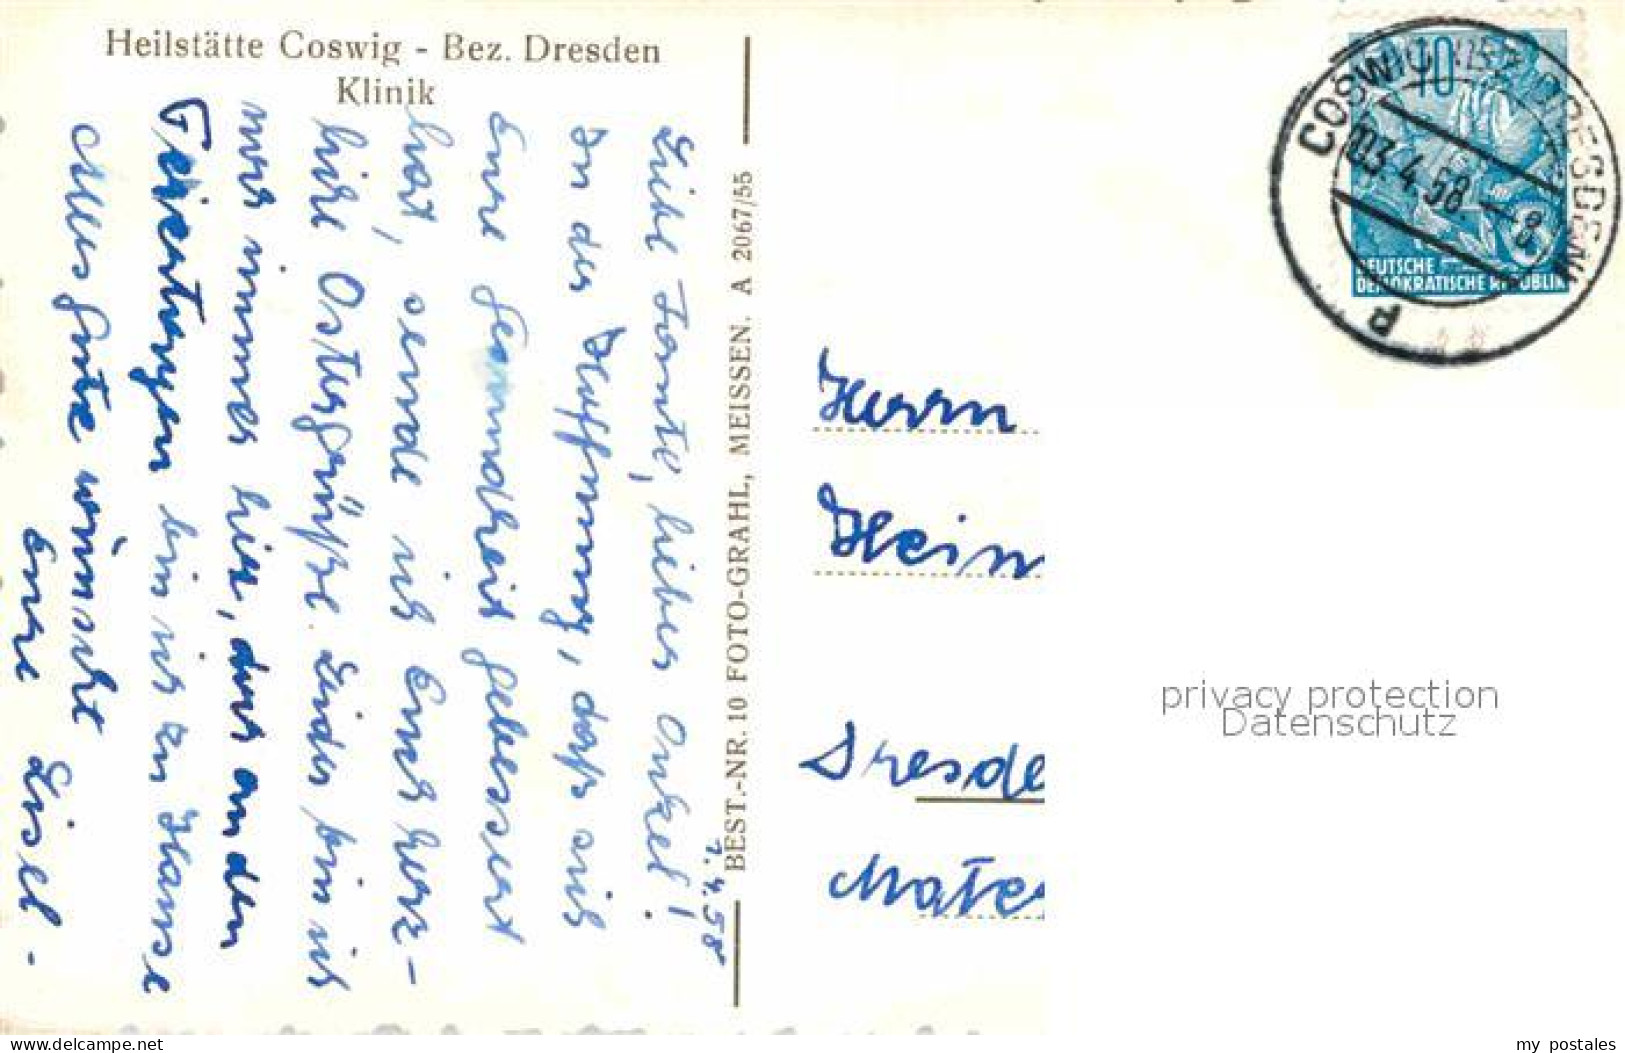 Heilstätte Coswig - Bez. Dresden
Klinik
1.4.58
Liebe Tante, lieber Onkel!
In der Hoffnung, daß sich
Eure Gesundheit gebessert
hat, sende ich Euch herz-
liche Ostergrüße. Leider bin ich
noch immer hier, doch an den
Feiertagen bin ich zu Hause
Alles Gute wünscht
Eure Lisel -
BEST.-NR. 10 FOTO-GRAHL, MEISSEN. A 2067/55
COSWIG (BEZ. DRESDEN)
03.4.58.-8
P
10
DEUTSCHE
DEMOKRATISCHE REPUBLIK
Herrn
Hein
Dresde
Mate
privacy protection
Datenschutz
www.delcampe.net
my_postales